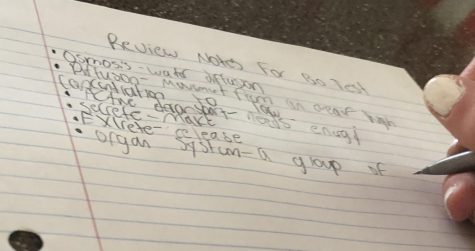 Review Notes For Bio Test
• Osmosis - water diffusion
• Diffusion - movment from an area of high
concentration to low
• Active transport - needs energy
• Secrete - make
• Excrete - release
• organ system - a group of